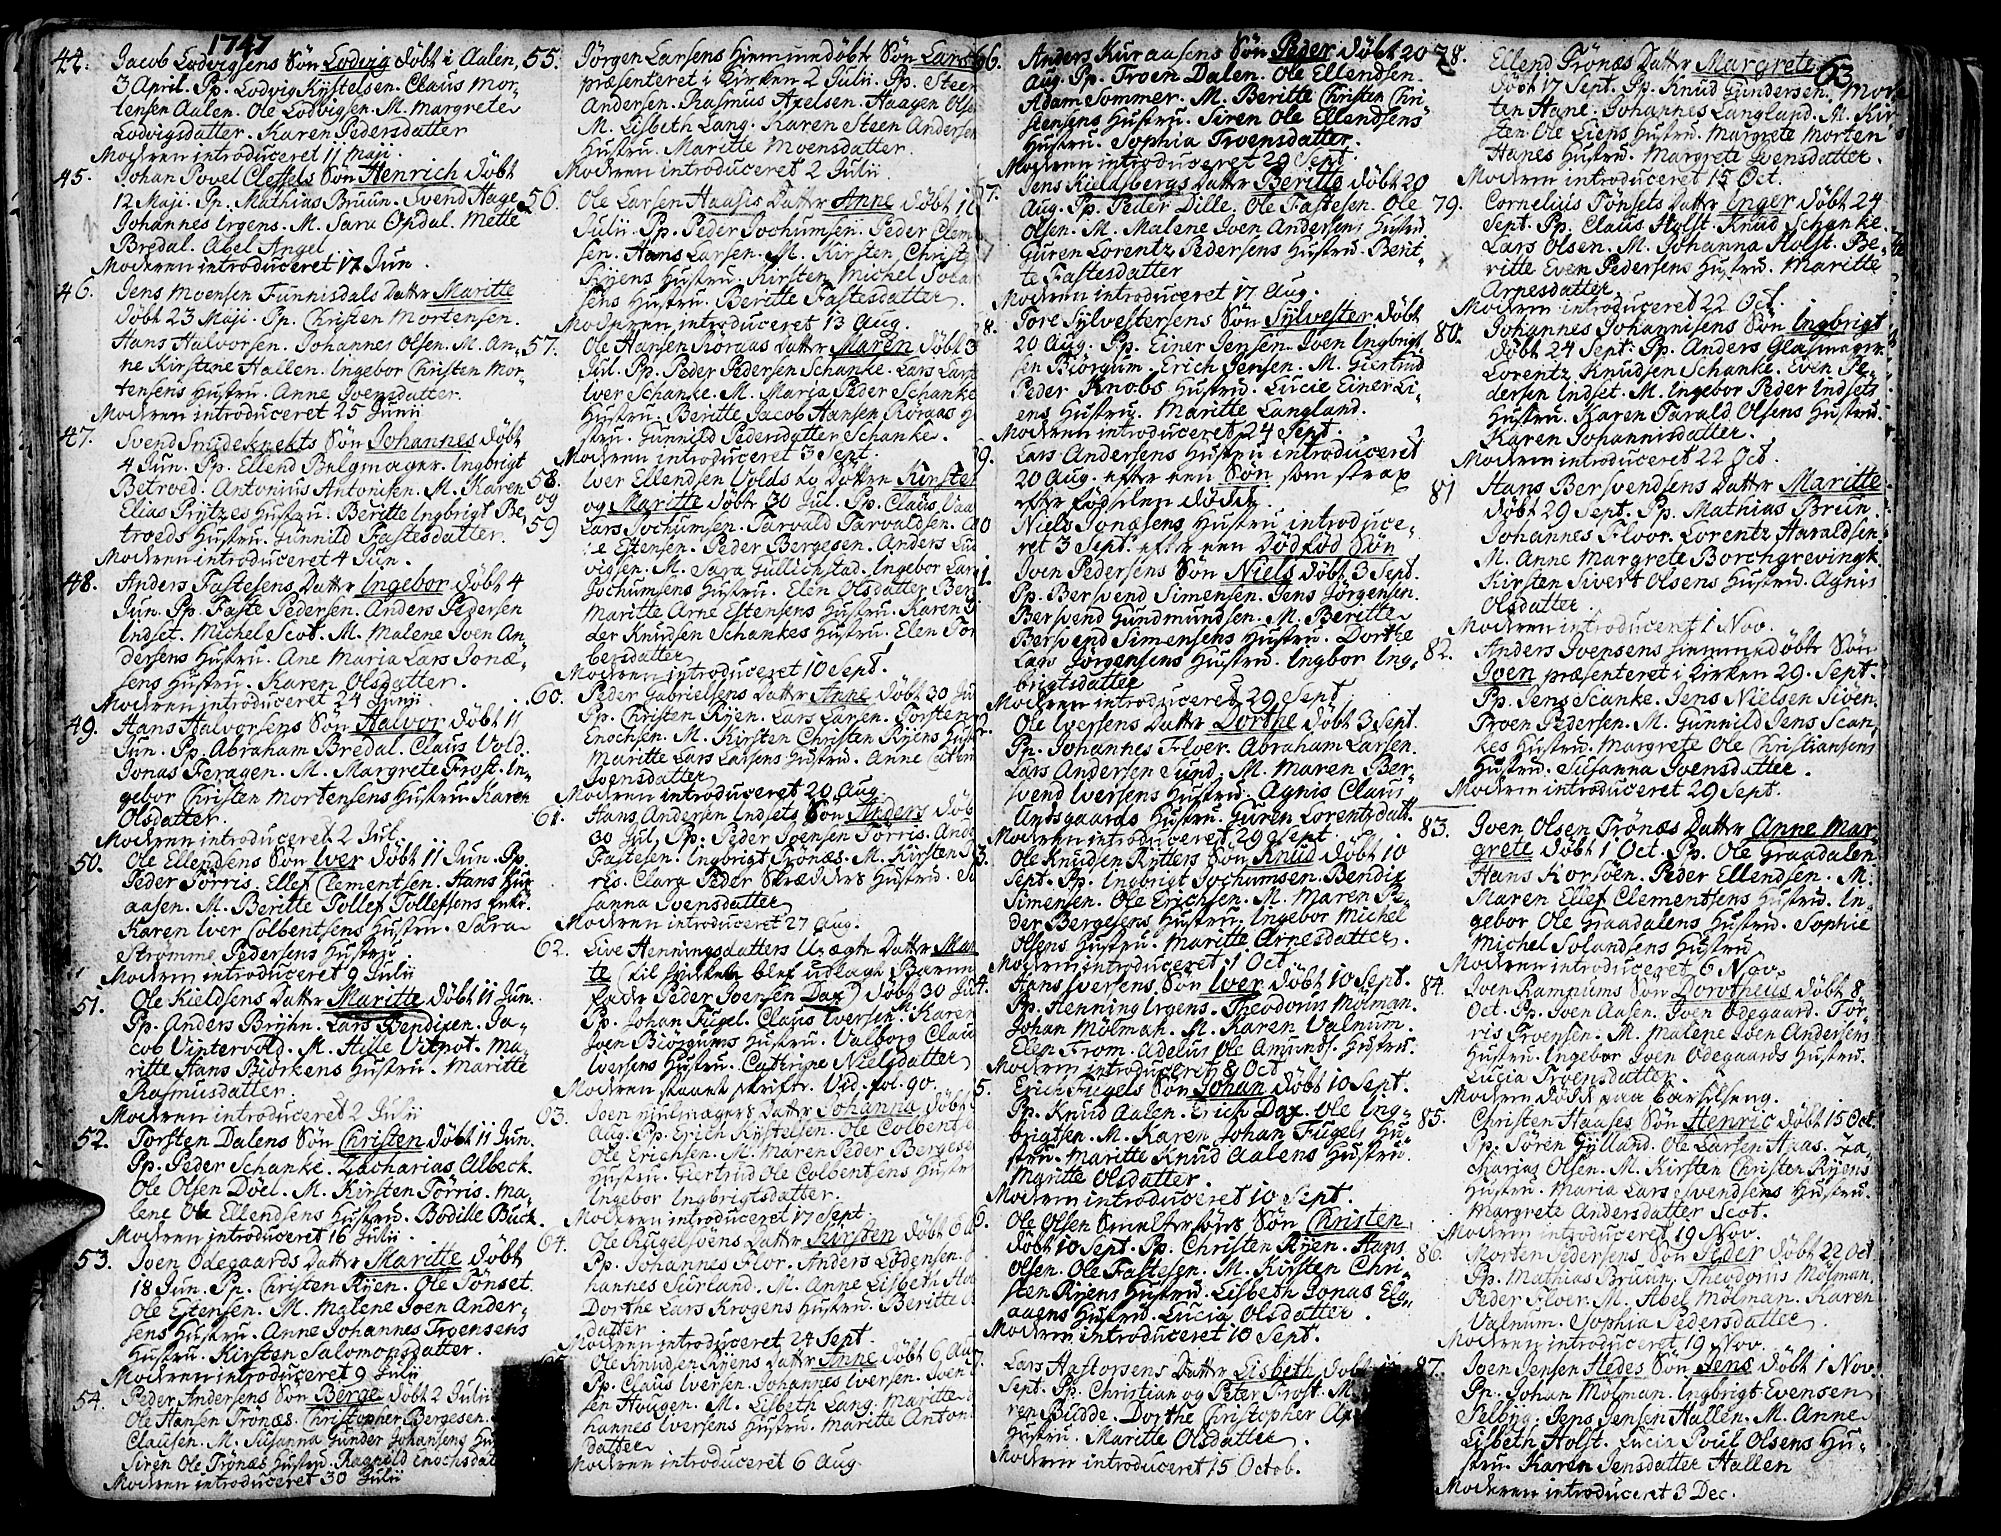 1747
44. Jacob Lodvigsens Søn Lodvig døbt i Aalen
3 April. Pp. Lodvig Kystelsen. Claus Mor-
tensen Aalen. Ole Lodvigsen. M. Margrete
Lodvigsdatter. Karen Pedersdatter
Moderen introduceret 11 Maji.
45. Johan Povel Clefsels Søn Henrich døbt
12 Maji. Pp. Mathias Bruun. Svend Aage
Johannes Irgens. M. Sara Opdal. Mette
Bredal. Abel Angel
Moderen introduceret 17 Jun
46. Jens Moensen Funnisdals Datter Maritte
døbt 23 Maji. Pp. Christen Mortensen.
Hans Halvorsen. Johannes Olsen. M. An-
ne Kirstene Hallen. Ingebor Christen Mor-
tensens Hustru. Anne Joensdatter.
Moderen introduceret 25 Junii
47. Svend Smideknekts Søn Johannes døbt
4 Jun. Pp. Ellend Belgmager. Ingbrigt
Betroed. Antonius Antonisen. M. Karen
Elias Prytzes Hustru. Beritte Ingbrigt Be-
troeds Hustru. Gunnild Fastesdatter.
Moderen introduceret 4 Jun.
48. Anders Fastesens Datter Ingebor døbt 4
Jun. Pp. Faste Pedersen. Anders Pedersen
Indset. Michel Scot. M. Malene Joen An
dersens Hustru. Ane Maria Lars Jonæ-
sens Hustru. Karen Olsdatter.
Moderen introduceret 24 Junii
49. Hans Halvorsens Søn Halvor døbt 11
Jun. Pp. Abraham Bredal. Claus Vold.
Jonas Feragen. M. Margrete Frost. In-
gebor Christen Mortensens Hustru. Karen
Olsdatter.
Moderen introduceret 2 Jul.
50. Ole Ellendsens Søn Iver døbt 11 Jun. Pp.
Peder Tørris. Ellef Clementsen. Hans Kur
aasen. M. Beritte Tollef Tollefsons Enke.
Karen Iver Colbentsens Hustru. Sara
Strømme Pedersens Hustru
Moderen introduceret 9 Julii
51. Ole Kieldsens Datter Maritte døbt 11 Jun.
Pp. Anders Bryhn. Lars Bendixen. Ja-
cob Vintervold. M. Hille Vitnot. Ma-
ritte Hans Biørkens Hustru. Maritte
Rasmusdatter.
Moderen introduceret 2 Julii
52. Torsten Dalens Søn Christen døbt 11 Jun.
Pp. Peder Schanke. Zacharias Albeck.
Ole Olsen Döel. M. Kirsten Tørris. Ma-
lene Ole Ellendsens Hustru. Bodille Buck
Moderen introduceret 16 Julii.
53. Joen Odegaards Datter Maritte døbt
18 Jun. Pp. Christen Ryen. Ole Tönset.
Ole Estensen. M. Malene Joen Ander-
sens Hustru. Anne Johannes Troensens
Hustru. Kirsten Salomonsdatter.
Moderen introduceret 9 Julii
54. Peder Andersens Søn Berge døbt 2 Julii
Ole Hansen Trönæs. Christopher Bergesen.
Clausen. M. Susanna Gunder Johansens Hu
Siren Ole Trönæs Hustru. Ragnild Enochsdat
Moderen introduceret 30 Julii
55. Jörgen Larsens Hiemmedøbt Søn Lars
præsenteret i Kirken 2 Julii. Pp. Steen
Andersen. Rasmus Axelsen. Haagen Olse
M. Lisbeth Lang. Karen Steen Andersen
Hustru. Maritte Moensdatter.
Moderen introduceret 2 Julii
56. Ole Larsen Haases Datter Anne døbt 16
Julii. Pp. Peder Jochumsen. Peder Clem
sen. Hans Larsen. M. Kirsten Christe
Ryens Hustru. Kirsten Michel Solan
sens Hustru. Beritte Fastesdatter.
Moderen introduceret 13 Aug.
57. Ole Hansen Röraas Datter Maren døbt 3
Jul. Pp. Peder Pedersen Schanke. Lars Lars
Iver Schanke. M. Maria Peder Schanke
Hustru. Beritte Jacob Hansen Röraas H
stru. Gunnild Pedersdatter Schanke.
Moderen introduceret 3 Sept.
58. og 59 Iver Ellendsen Volds to Döttre Kirsten
og Maritte døbte 30 Jul. Pp. Claus Vaa
Lars Jochumsen. Tarvald Tarvaldsen.
Estensen. Peder Bergesen. Anders Lud
vigsen. M. Sara Gullichstad. Ingebor Lars
Jochumsens Hustru. Elen Olsdatter Ber
Maritte Arne Estensens Hustru. Karen P
der Knudsen Schankes Hustru. Elen Tor
bersdatter
Moderen introduceret 10 Sept.
60. Peder Gabrielsens Datter Anne døbt 30 Ju
Pp. Christen Ryen. Lars Larsen. Torsten
Enochsen. M. Kirsten Christen Ryens Hust
Maritte Lars Larsens Hustru. Anne Cathri
Joensdatter
Moderen introduceret 20 Aug.
61. Hans Andersen Indsets Søn Anders døb
30 Jul. Pp. Peder Joensen Tørris. Ande
Fastesen. Ingbrigt Trönæs. M. Kirsten
ris. Clara Peder Skræders Hustru. Su
sanna Joensdatter
Moderen introduceret 27 Aug.
62. Live Henningsdatters Uægte Datter Mar
te (til hvilken blef udlagt Barne
fader Peder Joensen Dax) døbt 30 Jul
Pp. Johan Fugel. Claus Iversen. Karen
Joen Biörgums Hustru. Valborg Claus
Iversens Hustru. Cathrine Nielsdatter
Moderen staaet skrifte. Vid. fol. 90.
63. Joen Hiulmagers Datter Johanna døbt
Aug. Pp. Erich Kystelsen. Ole Colbent
Ole Erichsen. M. Maren Peder Bergese
Hustru. Giertrud Ole Colbentsens Hustr
Ingebor Ingbrigtsdatter.
Moderen introduceret 17 Sept.
64. Ole Rugelsöens Datter Kirsten døbt 6 A
Pp. Johannes Flor. Anders Lodensen.
hannes Suurland. M. Anne Lisbeth Ho
Dorthe Lars Krogens Hustru. Beritte
datter
Moderen introduceret 24 Sept.
Ole Knudsen Ryens Datter Anne døbt 6 Aug
Pp. Claus Iversen. Johannes Iversen. Joen
sen Haugen. M. Lisbeth Lang. Maritte
hannes Iversens Hustru. Maritte Anton
datter
Moderen introduceret 6 Aug
66. Anders Kuraasens Søn Peder døbt 20
Aug. Pp. Troen Dalen. Ole Ellendsen.
Adam Sommer. M. Beritte Christen Chri-
stensens Hustru. Siren Ole Ellendsens
Hustru. Sophia Troensdatter.
Moderen introduceret 29 Sept.
7. Jens Kieldsbergs Datter Beritte døbt 20
Aug. Pp. Peder Dille. Ole Fastesen. Ole
Olsen. M. Malene Joen Andersens Hustru
Guren Lorentz Pedersens Hustru. Berit-
te Fastesdatter
Moderen introduceret 17 Aug.
8. Tore Sylvestersens Søn Sylvester døbt
20 Aug. Pp. Einer Jensen. Joen Ingbrigt
sen Biörgum. Erich Jensen. M. Giertrud
Peder Knobs Hustru. Lucie Einer Li-
ens Hustru. Maritte Langland.
Moderen introduceret 24 Sept.
9. Lars Andersens Hustru introduceret
20 Aug. efter een Søn som strax
efter födselen döde.
0 Niels Jonæsens Hustru introduce-
ret 3 Sept. efter een Dödfød Søn
1. Joen Pedersens Søn Niels døbt 3 Sept.
Pp. Bersvend Simensen. Jens Jörgensen.
Bersvend Gundmundsen. M. Beritte
Bersvend Simensens Hustru. Dorthe
Lars Jörgensens Hustru. Ingbor Ing-
brigtsdatter
Moderen introduceret 29 Sept.
2. Ole Iversens Datter Dorthe døbt 3 Sept.
Pp. Johannes Floer. Abraham Larsen.
Lars Andersen Sund. M. Maren Ber-
svend Iversens Hustru. Agnis Claus
Andsgaards Hustru. Guren Lorentzdatt.
Moderen introduceret 29 Sept
3. Ole Knudsen Rytters Søn Knud døbt 10
Sept. Pp. Ingbrigt Jochumsen. Bendix
Simensen. Ole Erichsen. M. Maren Pe-
der Bergesens Hustru. Ingebor Michel
Olsens Hustru. Maritte Arnesdatter.
Moderen introduceret 1 Oct
4. Hans Iversens Søn Iver døbt 10 Sept.
Pp. Henning Irgens. Theodorus Mölman.
Johan Mölman. M. Karen Valnum.
Elen From. Adelus Ole Amunds. Hustru.
Moderen introduceret 8 Oct
5. Erich Fugels Søn Johan døbt 10 Sept.
Pp. Knud Aalen. Erich Dax. Ole Ing-
brigtsen. M. Karen Johan Fugels Hu-
stru. Maritte Knud Aalens Hustru.
Maritte Olsdatter.
Moderen introduceret 10 Sept.
6. Ole Olsen Smaltersöns Søn Christen
døbt 10 Sept. Pp. Christen Ryen. Hans
Olsen. Ole Fastesen. M. Kirsten Chri-
sten Ryens Hustru. Lisbeth Jonas Elg-
aaens Hustru. Lucia Olsdatter.
Moderen introduceret 10 Sept.
7. Lars Hafforsens Datter Lisbeth døbt
Sept. Pp. Christian og Peter Frost. M
ren Budde. Dorthe Christopher
Hustru. Maritte Olsdatter.
Moderen introduceret 15 Octob.
63
78. Ellend Trönæs Datter Margrete
døbt 17 Sept. Pp. Knud Gundersen. Mor
ten Hane. Johannes Langland. M. Kir
sten Ole Liens Hustru. Margrete Morten
Hanes Hustru. Margrete Joensdatter.
Moderen introduceret 15 Oct.
79. Cornelius Tönsets Datter Inger døbt 24
Sept. Pp. Claus Holst. Knud Schanke.
Lars Olsen. M. Johanna Holst. Be-
ritte Even Pedersens Hustru. Maritte
Arnesdatter.
Moderen introduceret 22 Oct.
80. Johannes Johannisens Søn Ingbrigt
døbt 24 Sept. Pp. Anders Glasmager.
Lorentz Knudsen Schanke. Even Pe-
dersen Indset. M. Ingebor Peder Indsets
Hustru. Karen Tarald Olsens Hustru.
Karen Johannisdatter.
Moderen introduceret 22 Oct.
81 Hans Bersvendsens Datter Maritte
døbt 29 Sept. Pp. Mathias Bruun.
Johannes Floor. Lorentz Haraldsen.
M. Anne Margrete Borchgrevingk
Kirsten Sivert Olsens Hustru. Agnis
Olsdatter
Moderen introduceret 1 Nov.
82. Anders Joensens hiemmedøbte Søn
Joen præsenteret i Kirken 29. Sept.
Pp. Jens Scanke. Jens Nielsen Sioen.
Troen Pedersen. M. Gunnild Jens Scan-
kes Hustru. Margrete Ole Christiansens
Hustru. Susanna Joensdatter.
Moderen introduceret 29 Sept.
83. Joen Olsen Trönæs Datter Anne Mar-
grete døbt 1 Oct. Pp. Ole Graadalen
Hans Korsöen. Peder Ellendsen. M.
Maren Ellef Clementsens Hustru. In-
gebor Ole Graadalens Hustru. Sophie
Michel Solandsens Hustru
Moderen introduceret 6 Nov.
84. Joen Rampiums Søn Dorotheus døbt 8
Oct. Pp. Joen Aasen. Joen Odegaard. Tör-
ris Troensen. M. Malene Joen Andersens
Hustru. Ingebor Joen Odegaards Hustru.
Lucia Troensdatter.
Moderen döde paa barselseng.
85. Christen Haases Søn Henric døbt 15 Oct
Pp. Sören Gylland. Ole Larsen Haas. Za-
charias Olsen. M. Kirsten Christen Ryens
Hustru. Maria Lars Svendsens Hustru.
Margrete Andersdatter Scot.
Moderen introduceret 19 Nov.
86. Morten Pedersens Søn Peder døbt 22 Oct
Pp. Mathias Bruun. Theodorus Mölman.
Peder Floer. M. Abel Mölman. Karen
Valnum. Sophia Pedersdatter
Moderen introduceret 19 Nov.
87. Joen Jensen Hedes Søn Jens døbt 1 Nov
Pp. Johan Mölman. Ingbrigt Evensen
Selbyg. Jens Jensen Hallen. M. Anne
Lisbeth Holst. Lucia Poul Olsens Hu-
stru. Karen Jensdatter Hallen
Moderen introduceret 3 Dec.